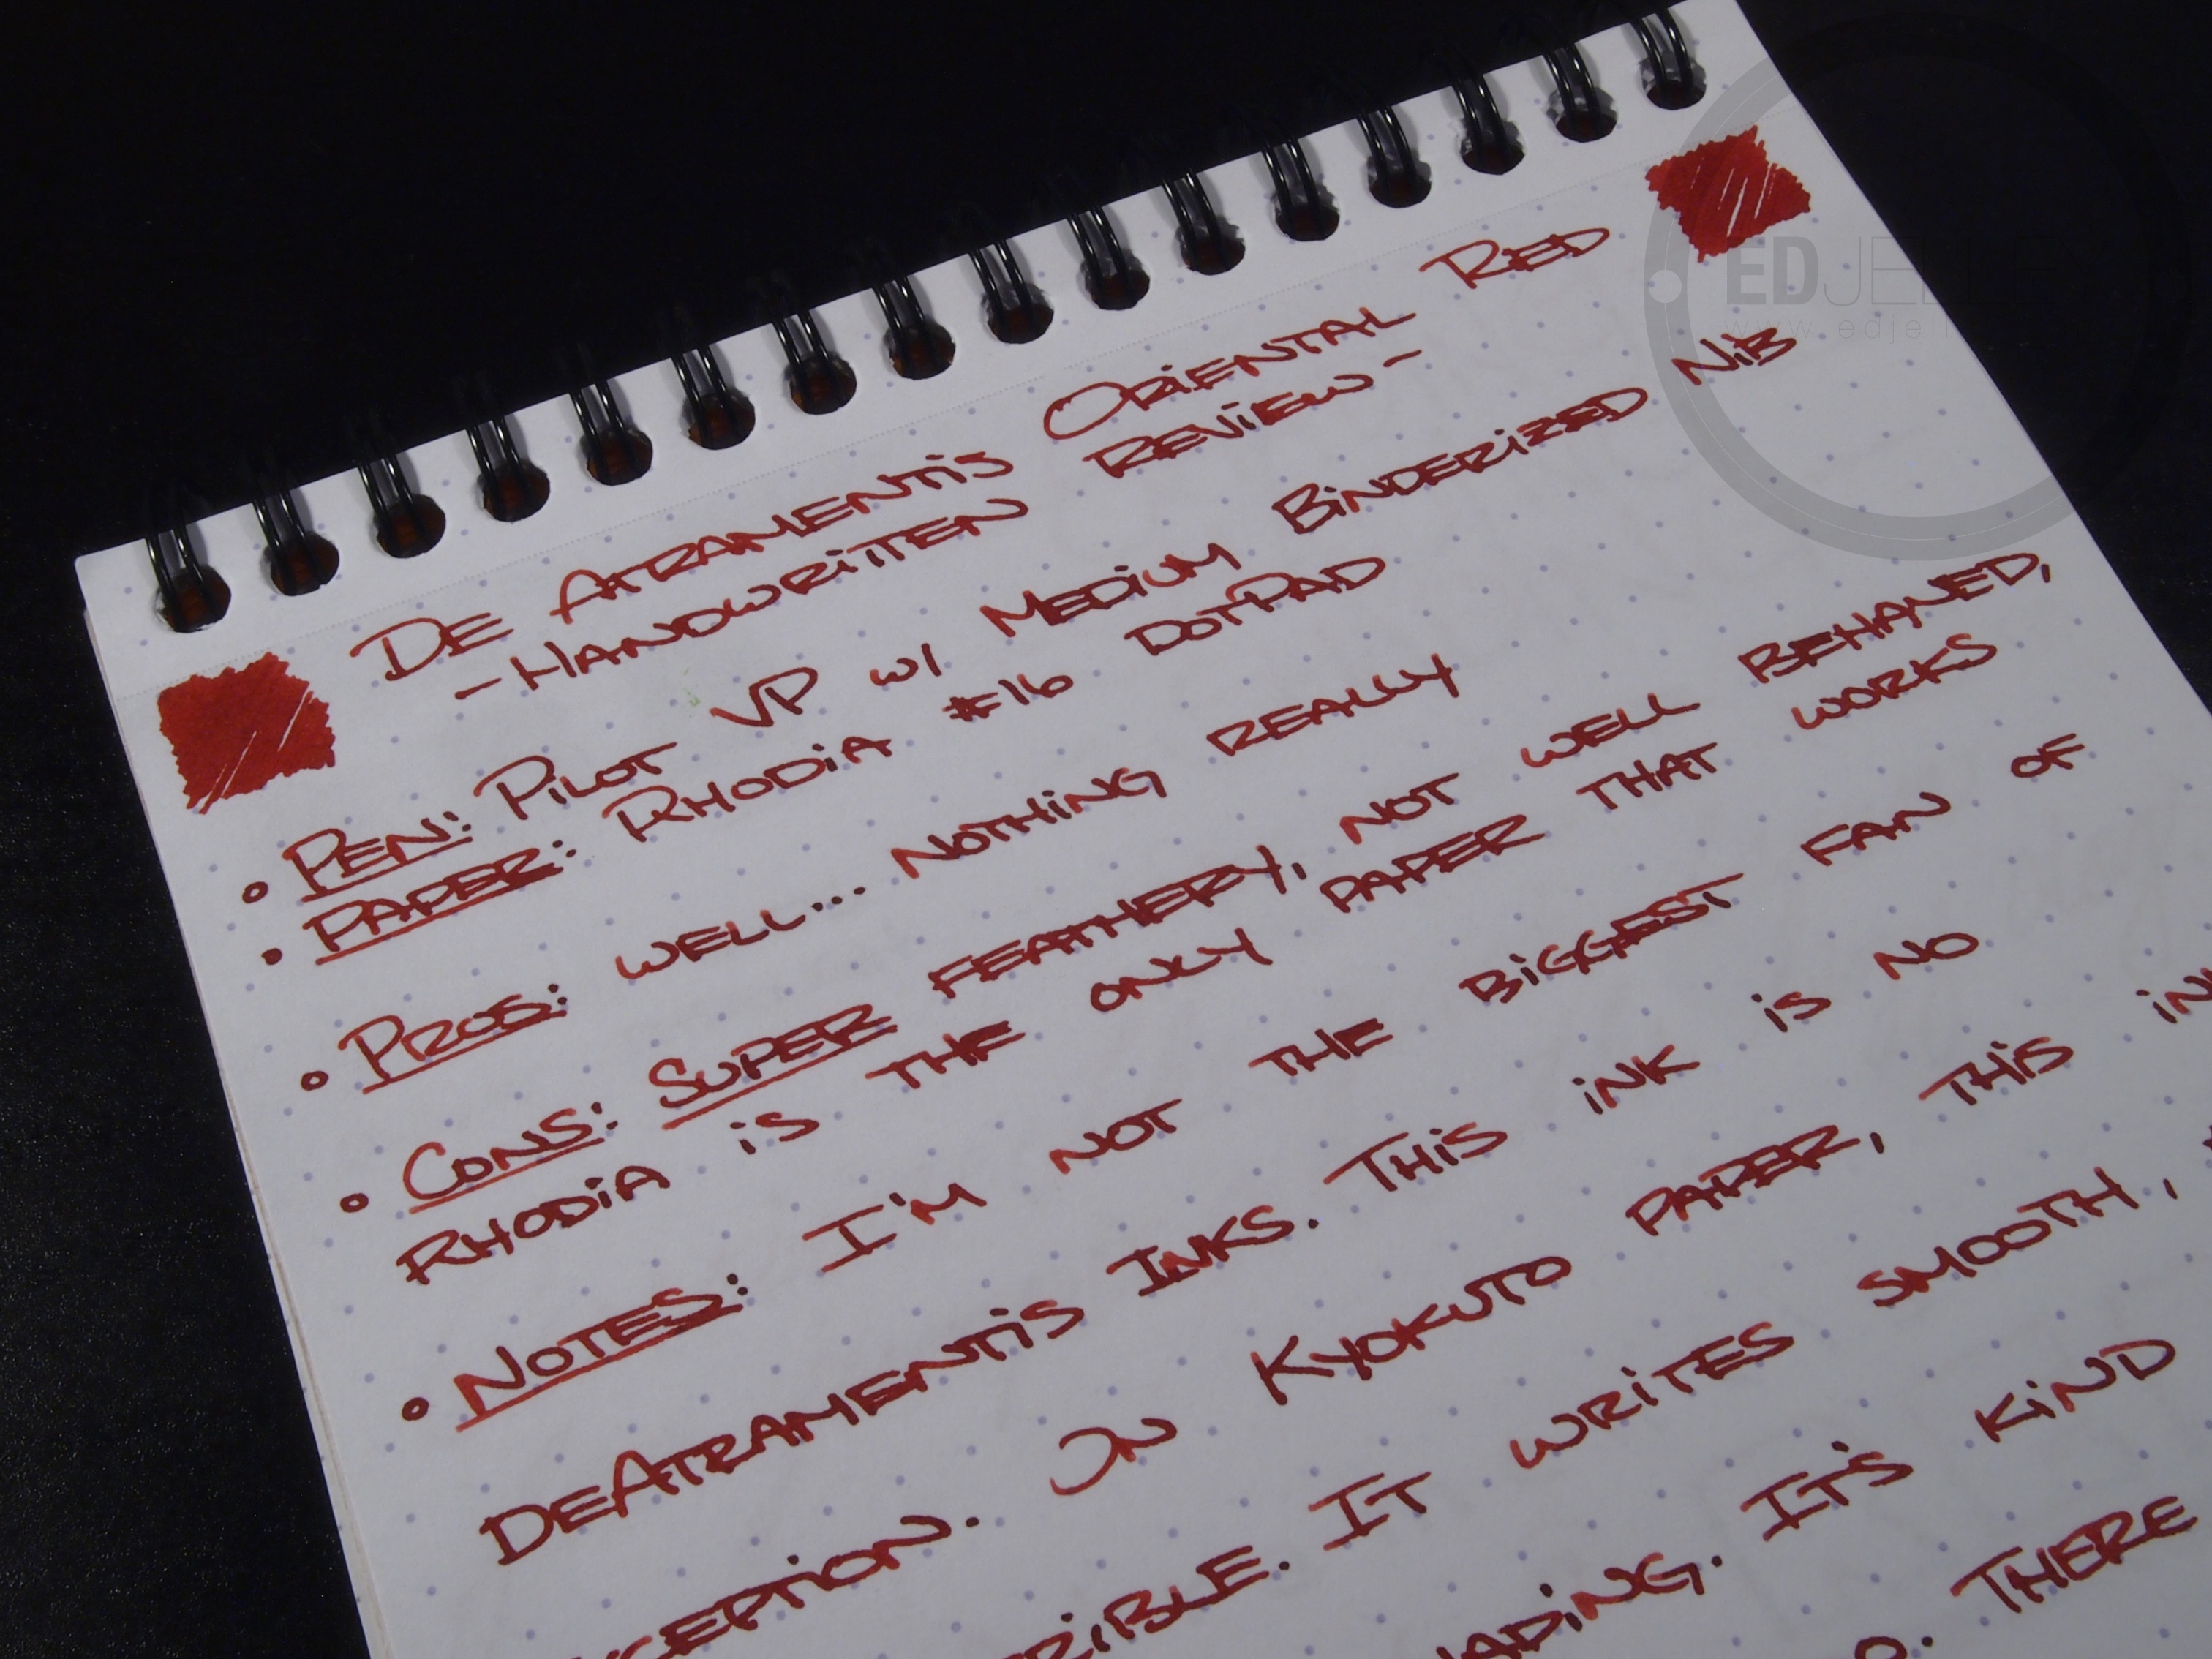 De Atramentis Oriental Red
- Handwritten Review -
• Pen: Pilot VP w/ Medium Binderized Nib
• Paper: Rhodia #16 DotPad
• Pros: Well... Nothing Really
• Cons: Super Feathery, Not Well Behaved,
Rhodia is the only paper that works
• Notes: I'm not the biggest fan of
DeAtramentis Inks. This ink is no
ception. On Kyokuto paper, this in
rible. It writes smooth,
ading. It's kind
o. There
EDJE
www.edjel